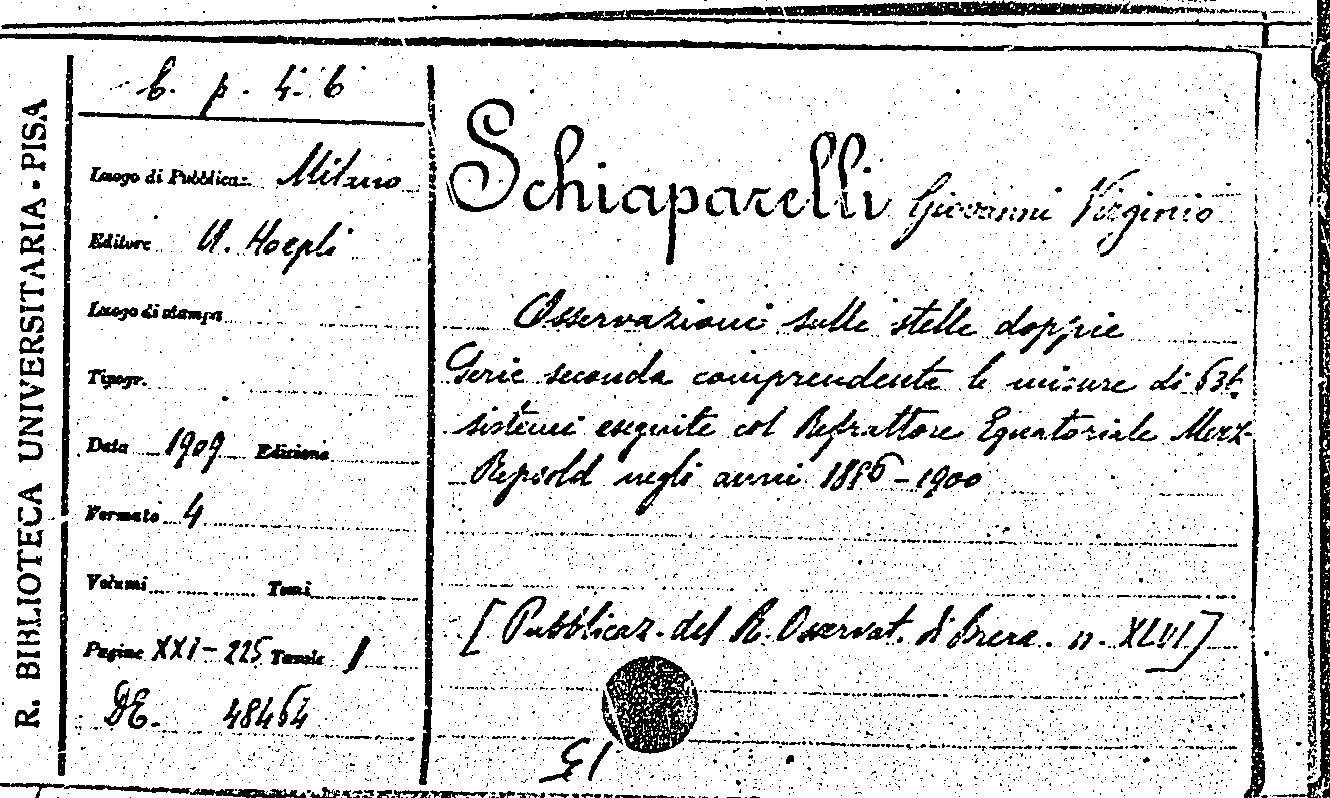 R. BIBLIOTECA UNIVERSITARIA - PISA
6. p. 4. 6
Luogo di Pubblicaz. Milano
Editore U. Hoepli
Luogo di stampa
Tipogr.
Data 1909 Edizione
Formato 4
Volumi Tomi
Pagine XXI-225 Tavole 1
DE. 48464
Schiaparelli Giovanni Virginio
Osservazioni sulle stelle doppie
Serie seconda comprendente le misure di 636
sistemi eseguite col Refrattore Equatoriale Merz-
Repsold negli anni 1886-1900
[Pubblicaz. del R. Osservat. di Brera. n. XLVI]